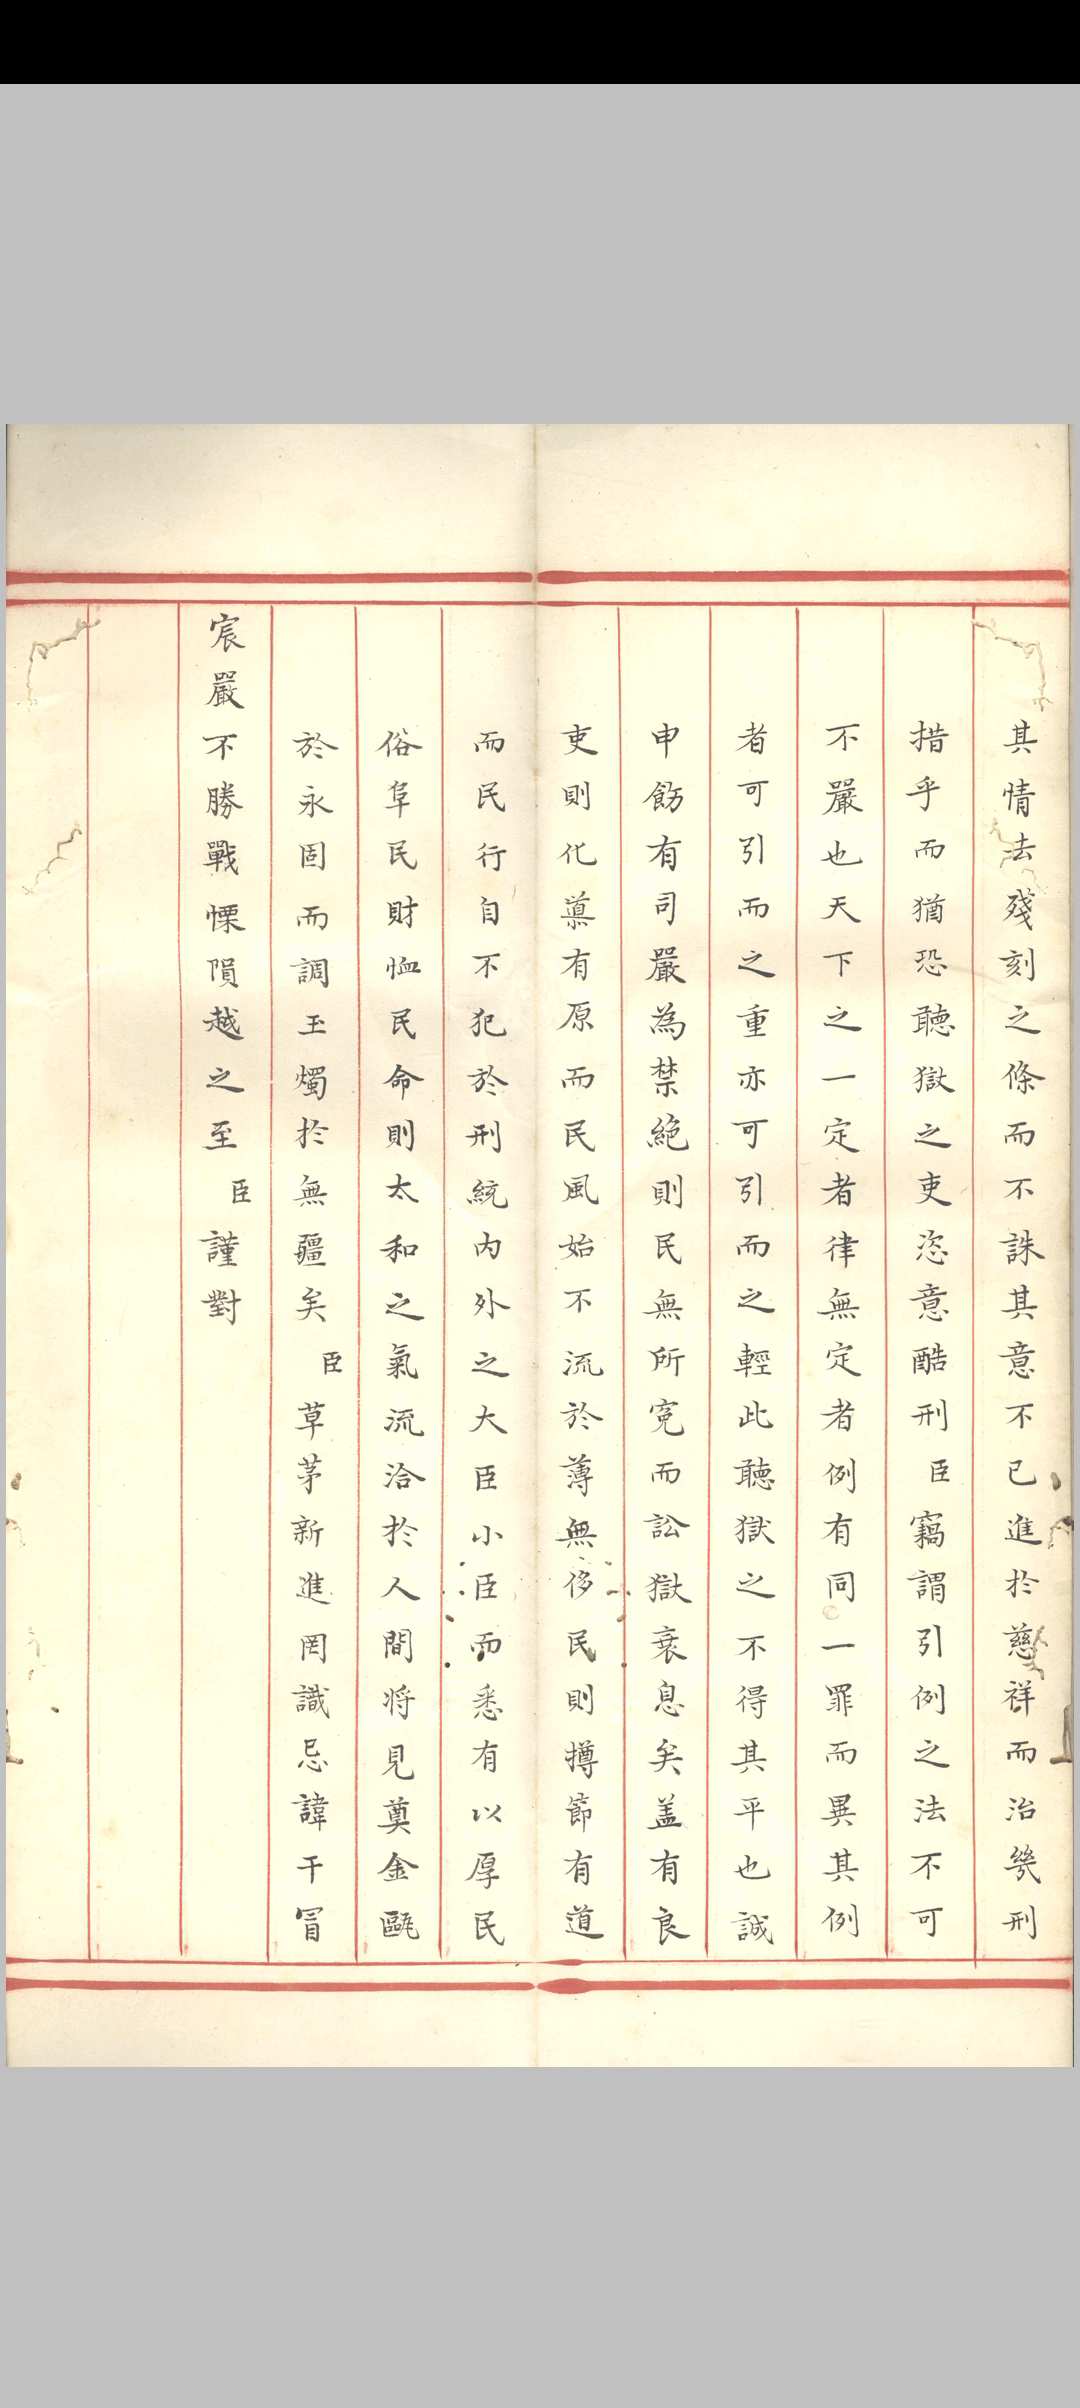 其情法殘刻之條而不誅其意不已進於慈祥而治幾刑
措乎而猶恐聽獄之吏恣意酷刑臣竊謂引例之法不可
不嚴也天下之一定者律無定者例有同一罪而異其例
者可引而之重亦可引而之輕此聽獄之不得其平也誠
申飭有司嚴為禁絕則民無所寃而訟獄衰息矣蓋有良
吏則化導有原而民風始不流於薄無侈民則撙節有道
而民行自不犯於刑統內外之大臣小臣而悉有以厚民
俗阜民財恤民命則太和之氣流洽於人間將見奠金甌
於永固而調玉燭於無疆矣臣草茅新進罔識忌諱干冒
宸嚴不勝戰慄隕越之至臣謹對